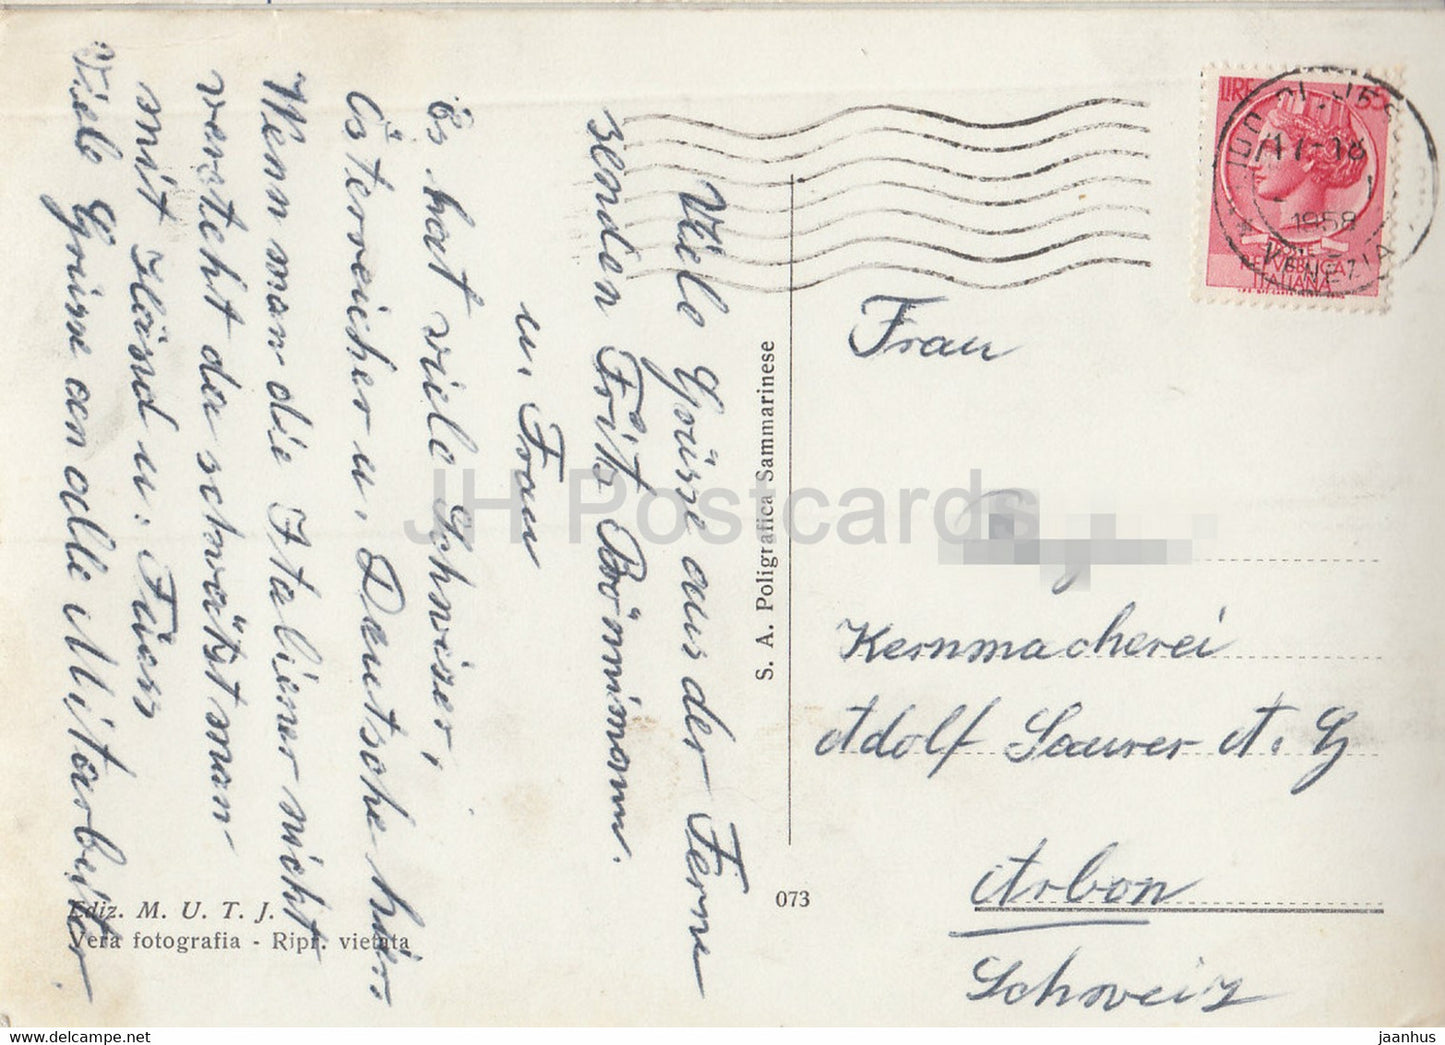 Viele Grüsse aus der Ferne
senden Fritz Bönnimann.
u. Frau
Es hat viele Schweiser,
Österreicher u. Deutsche hier.
Wenn man die Italiener nicht
versteht da schwätzt man
mit Händ u. Füess
Viele Grüsse an alle Mitarbeiter
S. A. Poligrafica Sammarinese
073
Ediz. M. U. T. J.
Vera fotografia - Ripr. vietata
LIRE
1958
VENEZIA
POSTE
REPVBBLICA
ITALIANA
Frau
Kernmacherei
Adolf Saurer A. G
Arbon
Schweiz
JH Postcards
www.delcampe.net
jaanhus